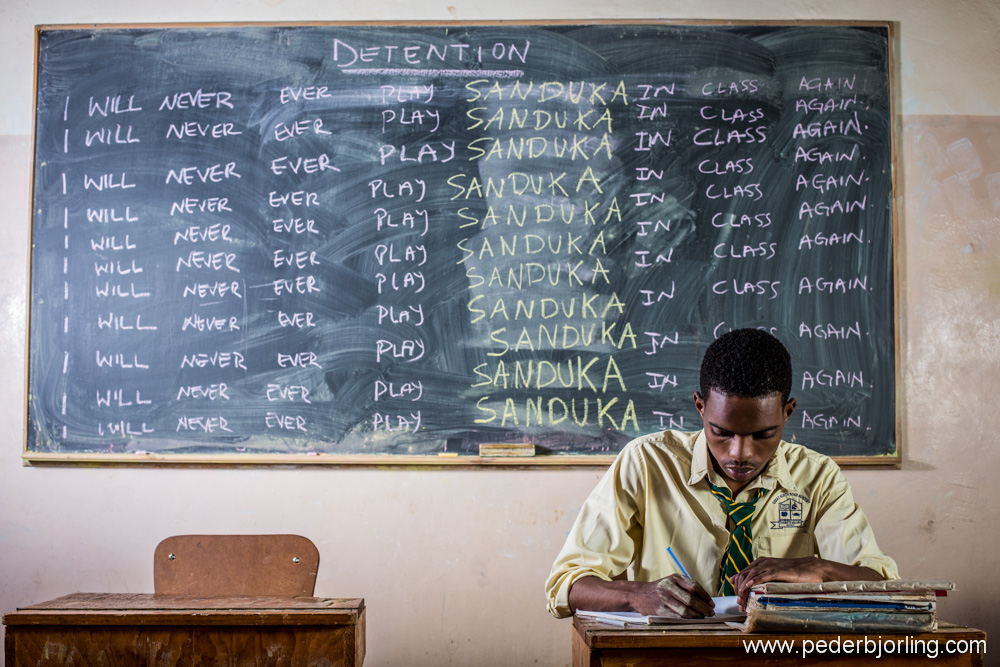 DETENTION
I WILL NEVER EVER PLAY SANDUKA IN CLASS AGAIN
I WILL NEVER EVER PLAY SANDUKA IN CLASS AGAIN.
I WILL NEVER EVER PLAY SANDUKA IN CLASS AGAIN.
I WILL NEVER EVER PLAY SANDUKA IN CLASS AGAIN.
I WILL NEVER EVER PLAY SANDUKA IN CLASS AGAIN.
I WILL NEVER EVER PLAY SANDUKA IN CLASS AGAIN.
I WILL NEVER EVER PLAY SANDUKA IN CLASS AGAIN.
I WILL NEVER EVER PLAY SANDUKA IN CLASS AGAIN.
I WILL NEVER EVER PLAY SANDUKA IN CLASS AGAIN.
I WILL NEVER EVER PLAY SANDUKA IN AGAIN.
I WILL NEVER EVER PLAY SANDUKA IN AGAIN.
www.pederbjorling.com